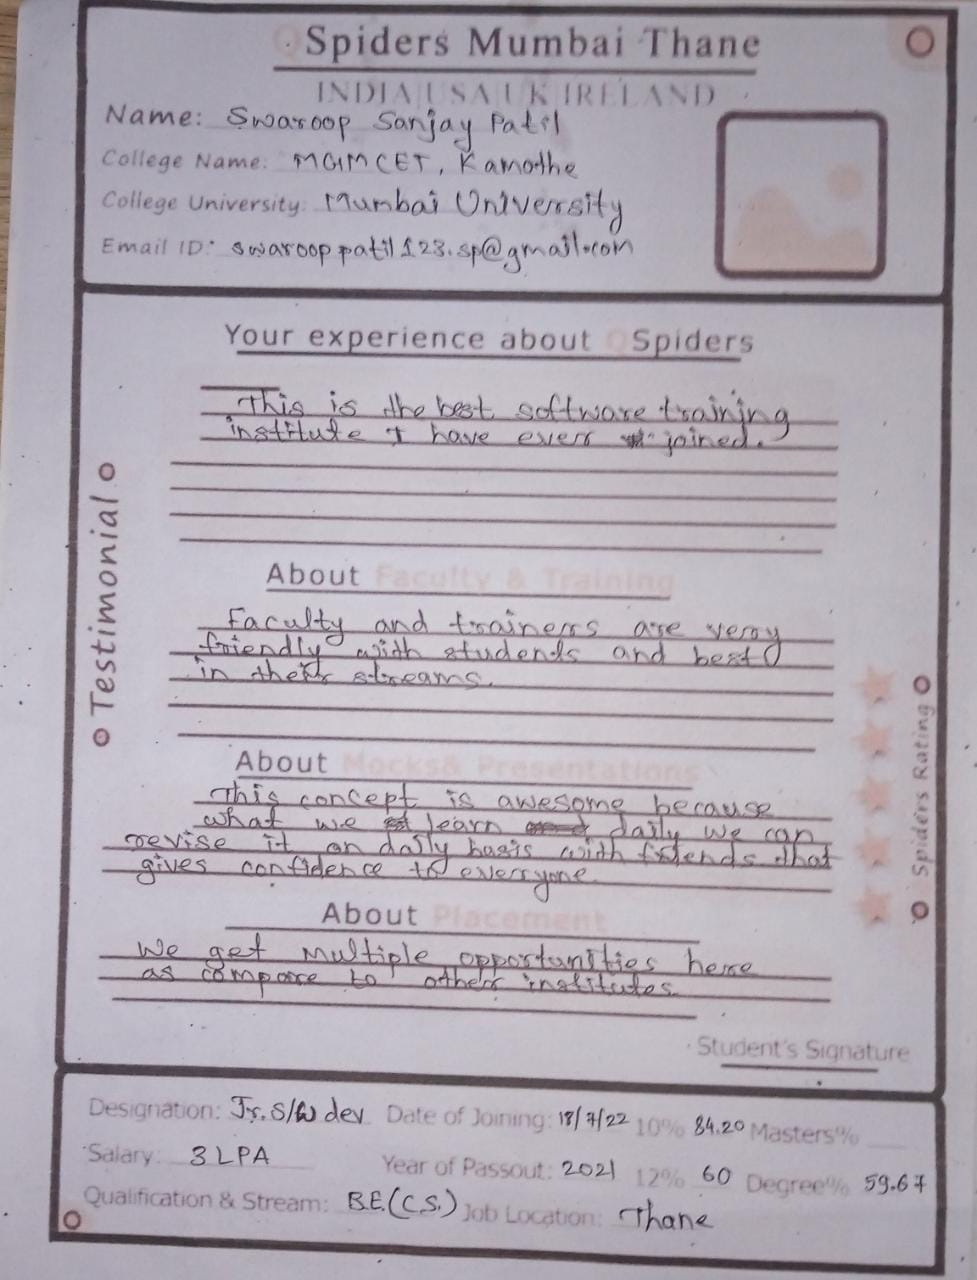 QSpiders Mumbai Thane
INDIA|USA|UK|IRELAND
Name: Swaroop Sanjay Patil
College Name: MGMCET, Kamothe
College University: Mumbai University
Email ID: swarooppatil123.sp@gmail.com
Your experience about QSpiders
This is the best software training
institute I have ever joined.
Testimonial
About Faculty & Training
Faculty and trainers are very
friendly with students and best
in their streams.
About Mocks& Presentations
This concept is awesome because
what we learn daily we can
revise it on daily basis with friends that
gives confidence to everyone
Spiders Rating
About Placement
We get multiple opportunities here
as compare to other institutes.
Student's Signature
Designation: Jr. S/W dev Date of Joining: 18/7/22 10% 84.20 Masters%
Salary: 3 LPA Year of Passout: 2021 12% 60 Degree% 59.67
Qualification & Stream: B.E.(C.S.) Job Location: Thane